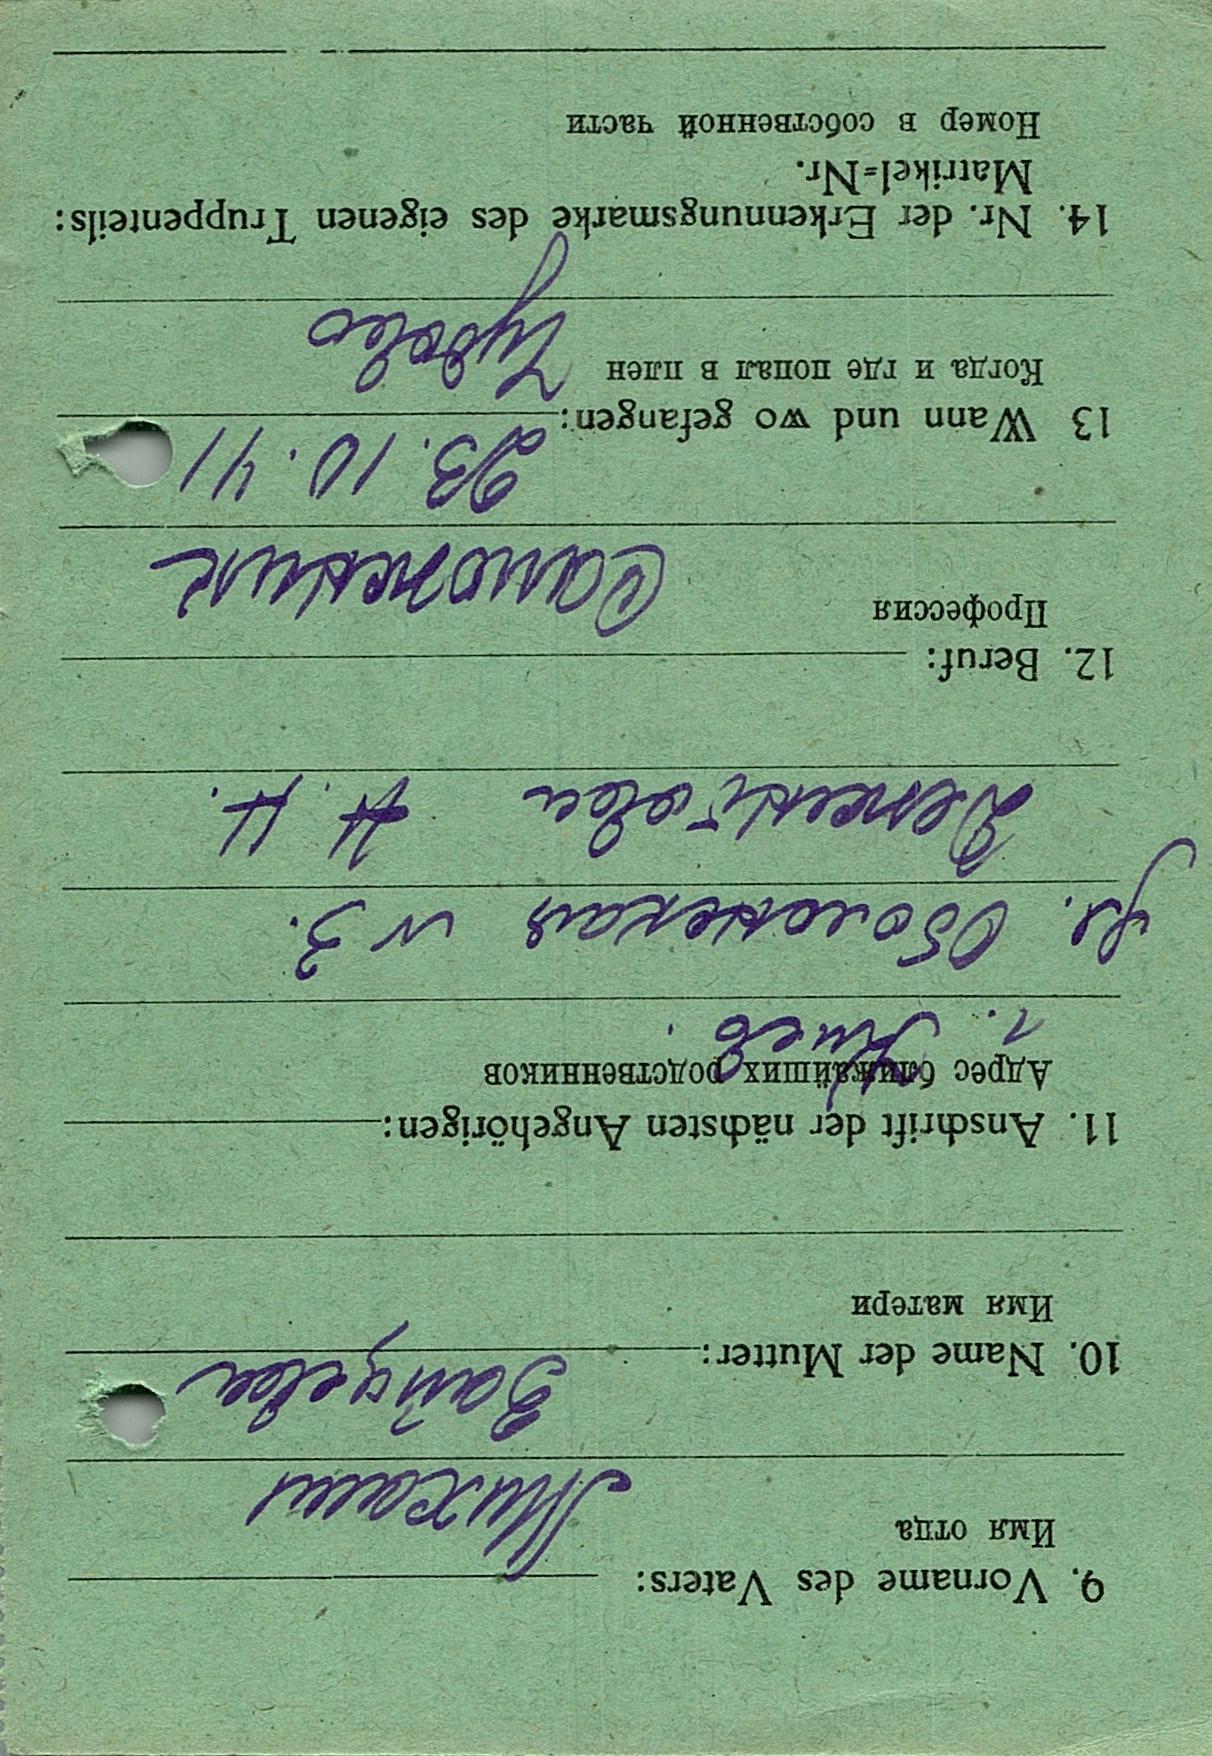 9. Vorname des Vaters:
Имя отца
Михаил
Зайцева
10. Name der Mutter:
Имя матери
11. Anschrift der nächsten Angehörigen:
Адрес ближайших родственников
г. Киев.
ул. Оболонская N 3.
Н. Н.
12. Beruf:
Профессия
Сапожник
23. 10. 41
13 Wann und wo gefangen:
Когда и где попал в плен
Чудово
14. Nr. der Erkennungsmarke des eigenen Truppenteils:
Matrikel=Nr.
Номер в собственной части